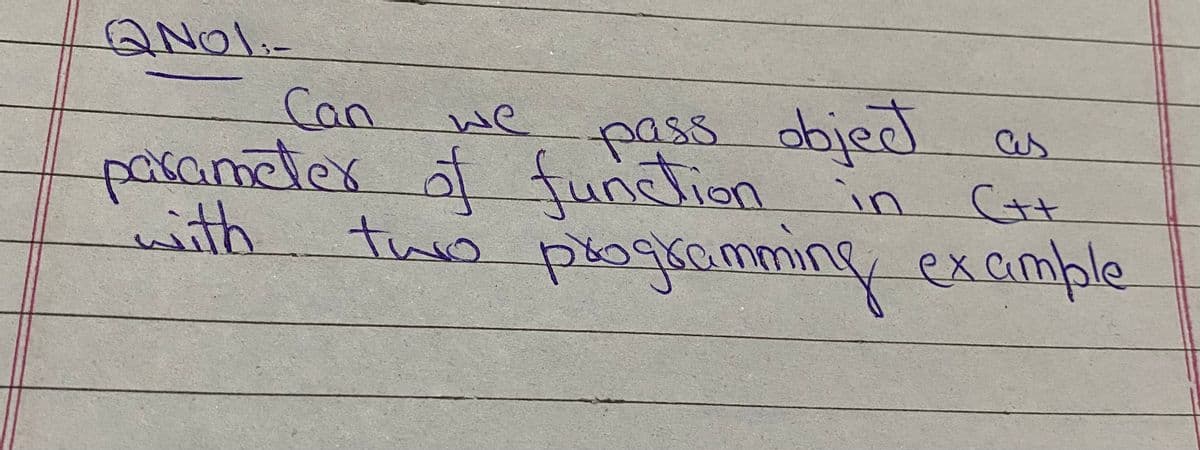 QNO1:-
Can we pass object as
parameter of function in C++
with two programming example